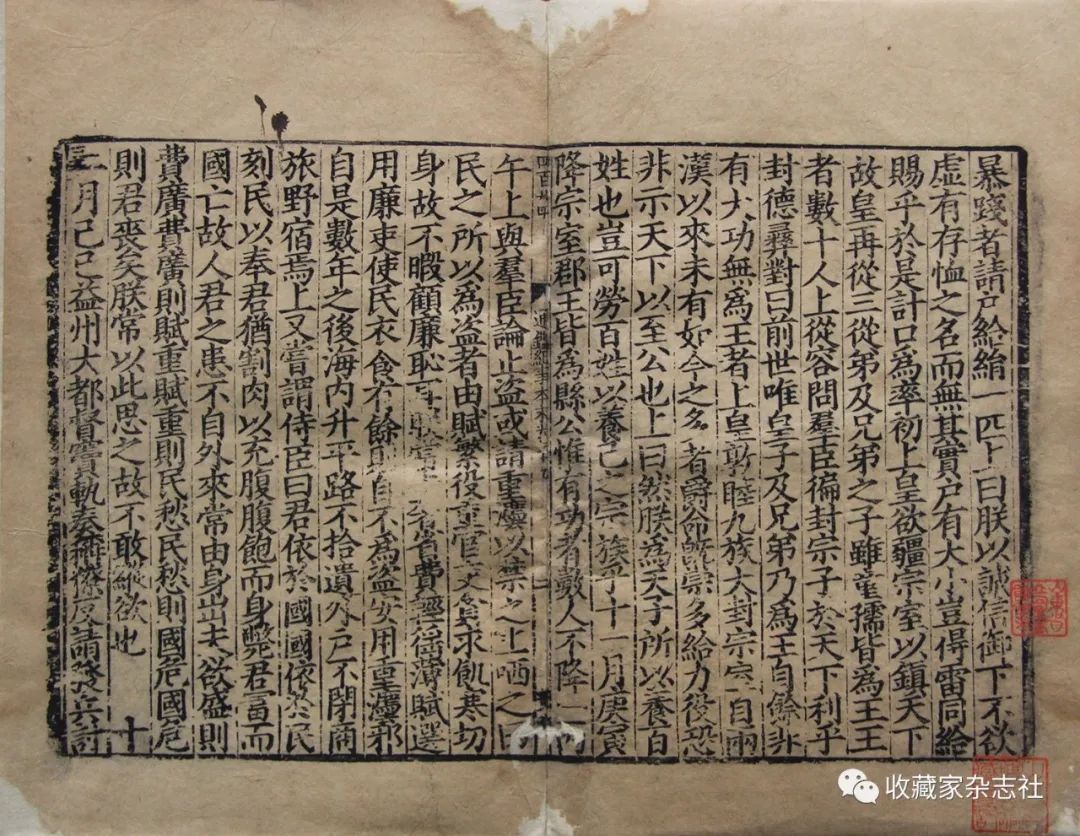 暴踐者請戶給絹一匹上曰朕以誠信御下不欲
虛有存恤之名而無其實戶有大小豈得雷同給
賜乎於是計口為率初上皇欲彊宗室以鎮天下
故皇再從三從弟及兄弟之子雖童孺皆為王王
者數十人上從容問羣臣徧封宗子於天下利乎
封德彝對曰前世唯皇子及兄弟乃為王自餘非
有大功無為王者上皇敦睦九族大封宗室自兩
漢以來未有如今之多者爵命旣崇多給力役恐
非示天下以至公也上曰然朕為天子所以養百
姓也豈可勞百姓以養己之宗族乎十一月庚寅
降宗室郡王皆為縣公惟有功者數人不降丙
通鑑紀事本末
午上與羣臣論止盜或請重灋以禁之上哂之曰
民之所以為盜者由賦繁役重官吏貪求飢寒切
身故不暇顧廉恥耳朕當奢省費輕徭薄賦選
用廉吏使民衣食有餘則自不為盜安用重灋邪
自是數年之後海內升平路不拾遺外戶不閉商
旅野宿焉上又嘗謂侍臣曰君依於國國依於民
刻民以奉君猶割肉以充腹腹飽而身斃君富而
國亡故人君之患不自外來常由身出夫欲盛則
費廣費廣則賦重賦重則民愁民愁則國危國危
則君喪矣朕常以此思之故不敢縱欲也 十
二月己巳益州大都督竇軌奏稱獠反請發兵討
收藏家杂志社